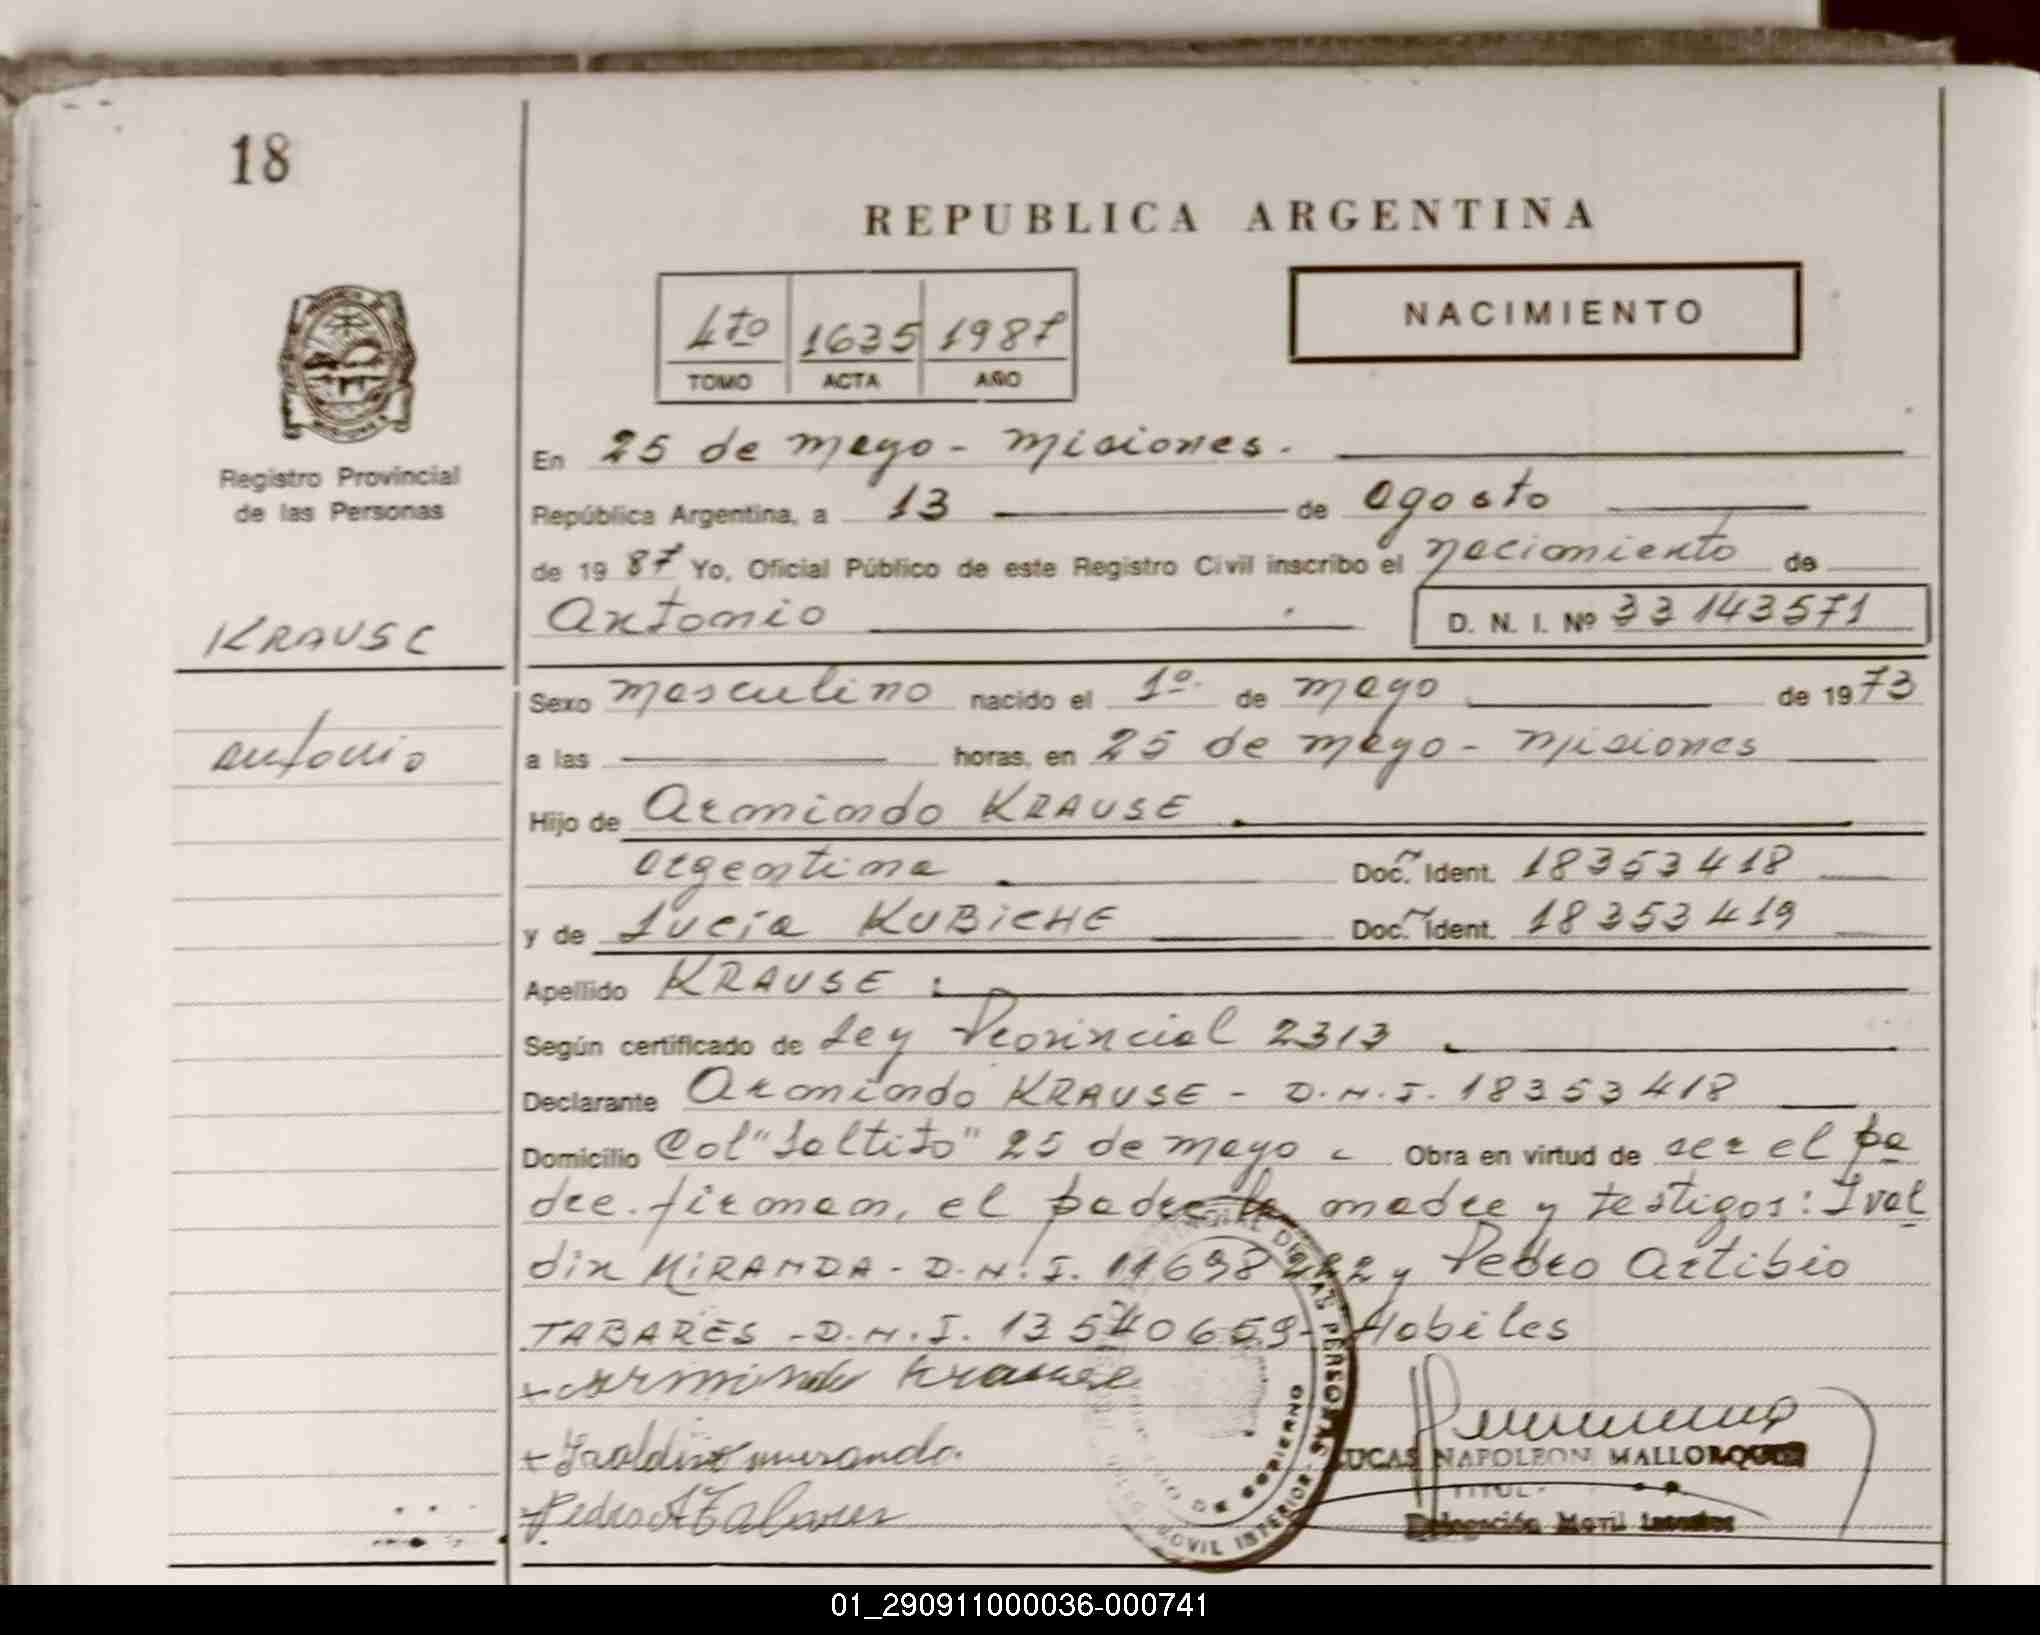 18
REPUBLICA ARGENTINA
4to 1635 1987
TOMO ACTA AÑO
NACIMIENTO
Registro Provincial
de las Personas
KRAUSE
Antonio
En 25 de mayo - Misiones.
República Argentina, a 13 de agosto
de 1987 Yo, Oficial Público de este Registro Civil inscribo el nacimiento de
Antonio D. N. I. Nº 33 143571
Sexo masculino nacido el 1º de mayo de 1973
a las horas, en 25 de mayo - Misiones
Hijo de Armindo KRAUSE
argentina Doc. Ident. 18353418
y de Lucía KUBICHE Doc. Ident. 18353419
Apellido KRAUSE
Según certificado de Ley Provincial 2313
Declarante Armindo KRAUSE - D.N.I. 18353418
Domicilio Col "Saltito" 25 de mayo Obra en virtud de ser el pa
dre. firman, el padre la madre y testigos: Ival
din MIRANDA - D.N.I. y Pedro Artibio
TABARES - D.N.I. 13540659 - Hobiles
+ Armindo Krause
+ Ivaldin miranda
+ Pedro A Tabares
LUCAS NAPOLEON MALLORQUIN
TITUL
Delegación Movil
DE LAS PERSONAS
MOVIL INTERIOR
DE GOBIERNO
01_290911000036-000741